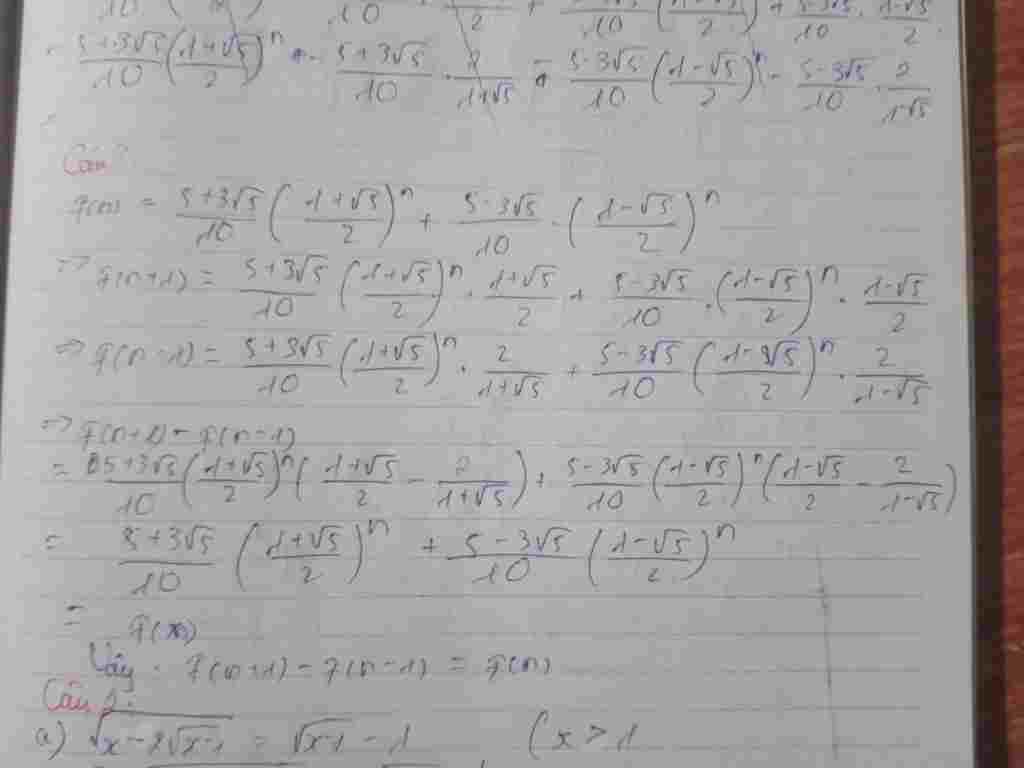 = \frac{5+3√5}{10} (\frac{1+√5}{2})^n - \frac{5+3√5}{10} · \frac{2}{1+√5} + \frac{5-3√5}{10} (\frac{1-√5}{2})^n - \frac{5-3√5}{10} · \frac{2}{1-√5}
Câu
f(n) = \frac{5+3√5}{10} (\frac{1+√5}{2})^n + \frac{5-3√5}{10} · (\frac{1-√5}{2})^n
=> f(n+1) = \frac{5+3√5}{10} (\frac{1+√5}{2})^n · \frac{1+√5}{2} + \frac{5-3√5}{10} · (\frac{1-√5}{2})^n · \frac{1-√5}{2}
=> f(n-1) = \frac{5+3√5}{10} (\frac{1+√5}{2})^n · \frac{2}{1+√5} + \frac{5-3√5}{10} (\frac{1-√5}{2})^n · \frac{2}{1-√5}
=> f(n+1) - f(n-1)
= \frac{5+3√5}{10} (\frac{1+√5}{2})^n (\frac{1+√5}{2} - \frac{2}{1+√5}) + \frac{5-3√5}{10} (\frac{1-√5}{2})^n (\frac{1-√5}{2} - \frac{2}{1-√5})
= \frac{5+3√5}{10} (\frac{1+√5}{2})^n + \frac{5-3√5}{10} (\frac{1-√5}{2})^n
= f(n)
Vậy · f(n+1) - f(n-1) = f(n)
Câu 2:
a) √(x-2√(x-1)) = √(x-1) - 1 (x > 1